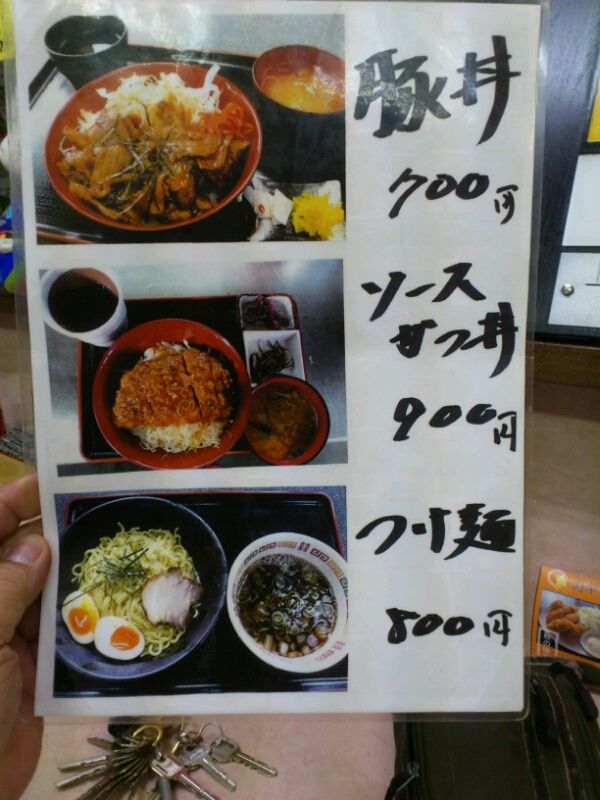 豚丼
700円
ソース
カツ丼
900円
つけ麺
800円